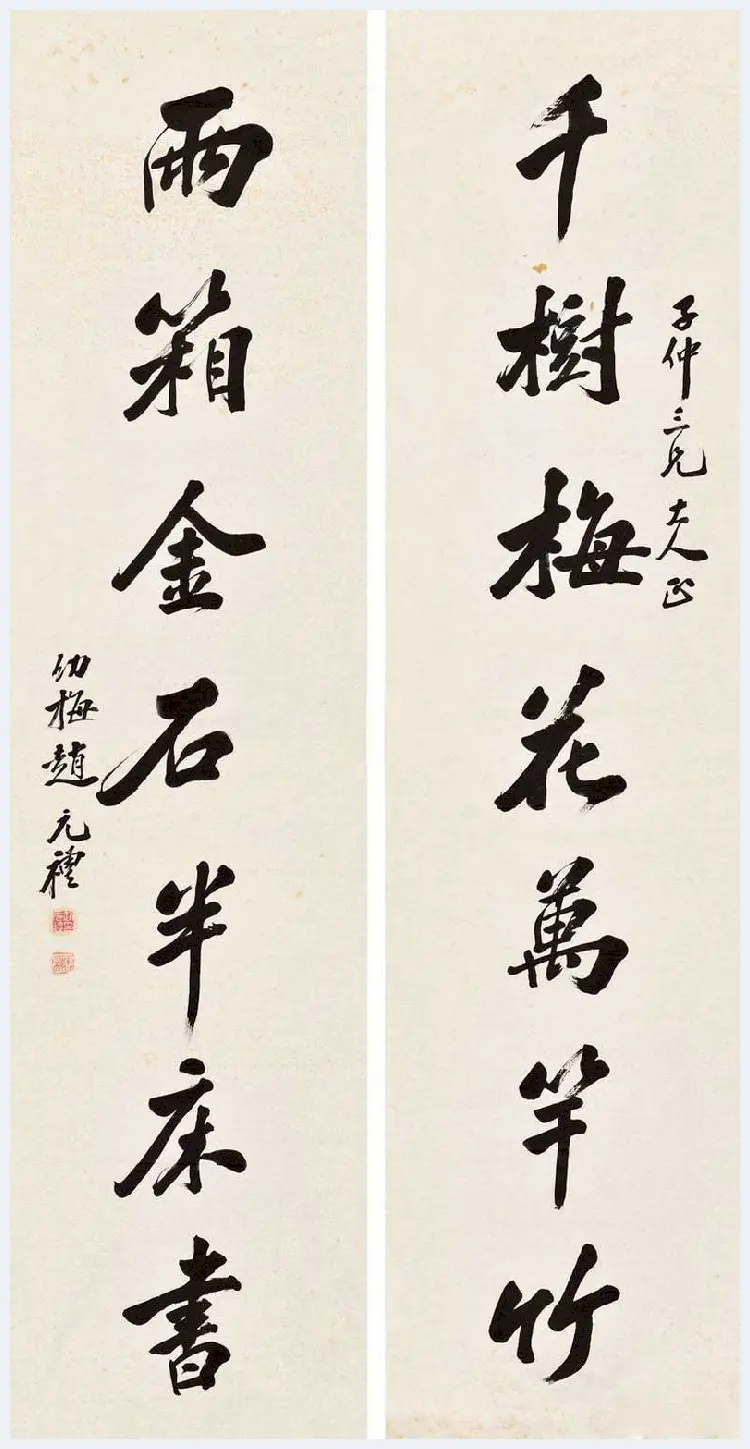 千樹梅花萬竿竹
子仲三兄大人正
兩箱金石半床書
幼梅趙元禮